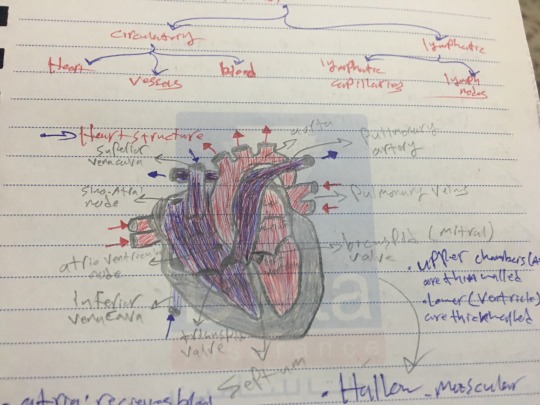 circulatory
lymphatic
Heart
vessels
blood
lymphatic
capillaries
lymph
nodes
Heart structure
superior
vena cava
aorta
pulmonary
artery
sino-atrial
node
pulmonary veins
bicuspid (mitral)
valve
atrio ventricular
node
inferior
vena cava
valve
septum
upper chambers
are thin walled
Lower (ventricle)
are thick walled
Hallow muscular